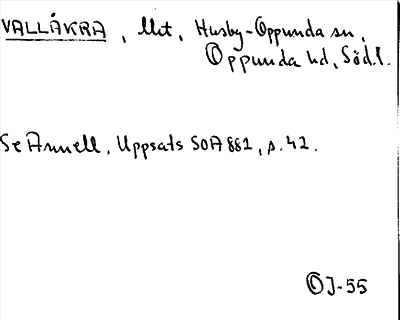 VALLÅKRA, Uet, Husby-Oppunda sn,
Oppunda hd, Södl.
Se Annell, Uppsats SOA 882, s. 42.
OJ-55